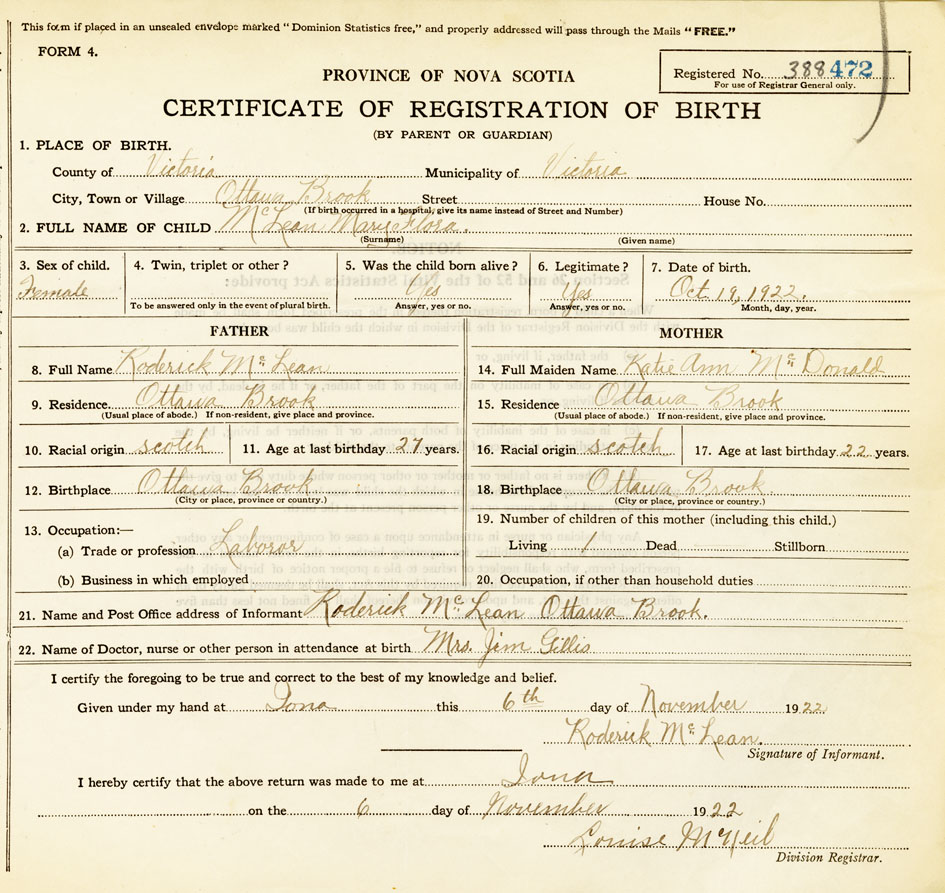 This form if placed in an unsealed envelope marked "Dominion Statistics free," and properly addressed will pass through the Mails "FREE."
FORM 4.
Registered No. 388472
For use of Registrar General only.
PROVINCE OF NOVA SCOTIA
CERTIFICATE OF REGISTRATION OF BIRTH
(BY PARENT OR GUARDIAN)
1. PLACE OF BIRTH.
County of Victoria Municipality of Victoria
City, Town or Village Ottawa Brook Street House No.
(If birth occurred in a hospital, give its name instead of Street and Number)
2. FULL NAME OF CHILD McLean Mary Flora.
(Surname) (Given name)
3. Sex of child. 4. Twin, triplet or other? 5. Was the child born alive? 6. Legitimate? 7. Date of birth.
Female Yes Yes Oct. 19, 1922.
To be answered only in the event of plural birth. Answer, yes or no. Answer, yes or no. Month, day, year.
FATHER MOTHER
8. Full Name Roderick McLean 14. Full Maiden Name Katie Ann McDonald
9. Residence Ottawa Brook 15. Residence Ottawa Brook
(Usual place of abode.) If non-resident, give place and province. (Usual place of abode.) If non-resident, give place and province.
10. Racial origin scotch 11. Age at last birthday 27 years. 16. Racial origin scotch 17. Age at last birthday 22 years.
12. Birthplace Ottawa Brook 18. Birthplace Ottawa Brook.
(City or place, province or country.) (City or place, province or country.)
13. Occupation:— 19. Number of children of this mother (including this child.)
(a) Trade or profession Laboror Living 1 Dead Stillborn
(b) Business in which employed 20. Occupation, if other than household duties
21. Name and Post Office address of Informant Roderick McLean Ottawa Brook.
22. Name of Doctor, nurse or other person in attendance at birth Mrs. Jim Gillis
I certify the foregoing to be true and correct to the best of my knowledge and belief.
Given under my hand at Iona this 6th day of November 1922
Roderick McLean.
Signature of Informant.
I hereby certify that the above return was made to me at Iona
on the 6 day of November 1922
Louise McNeil
Division Registrar.